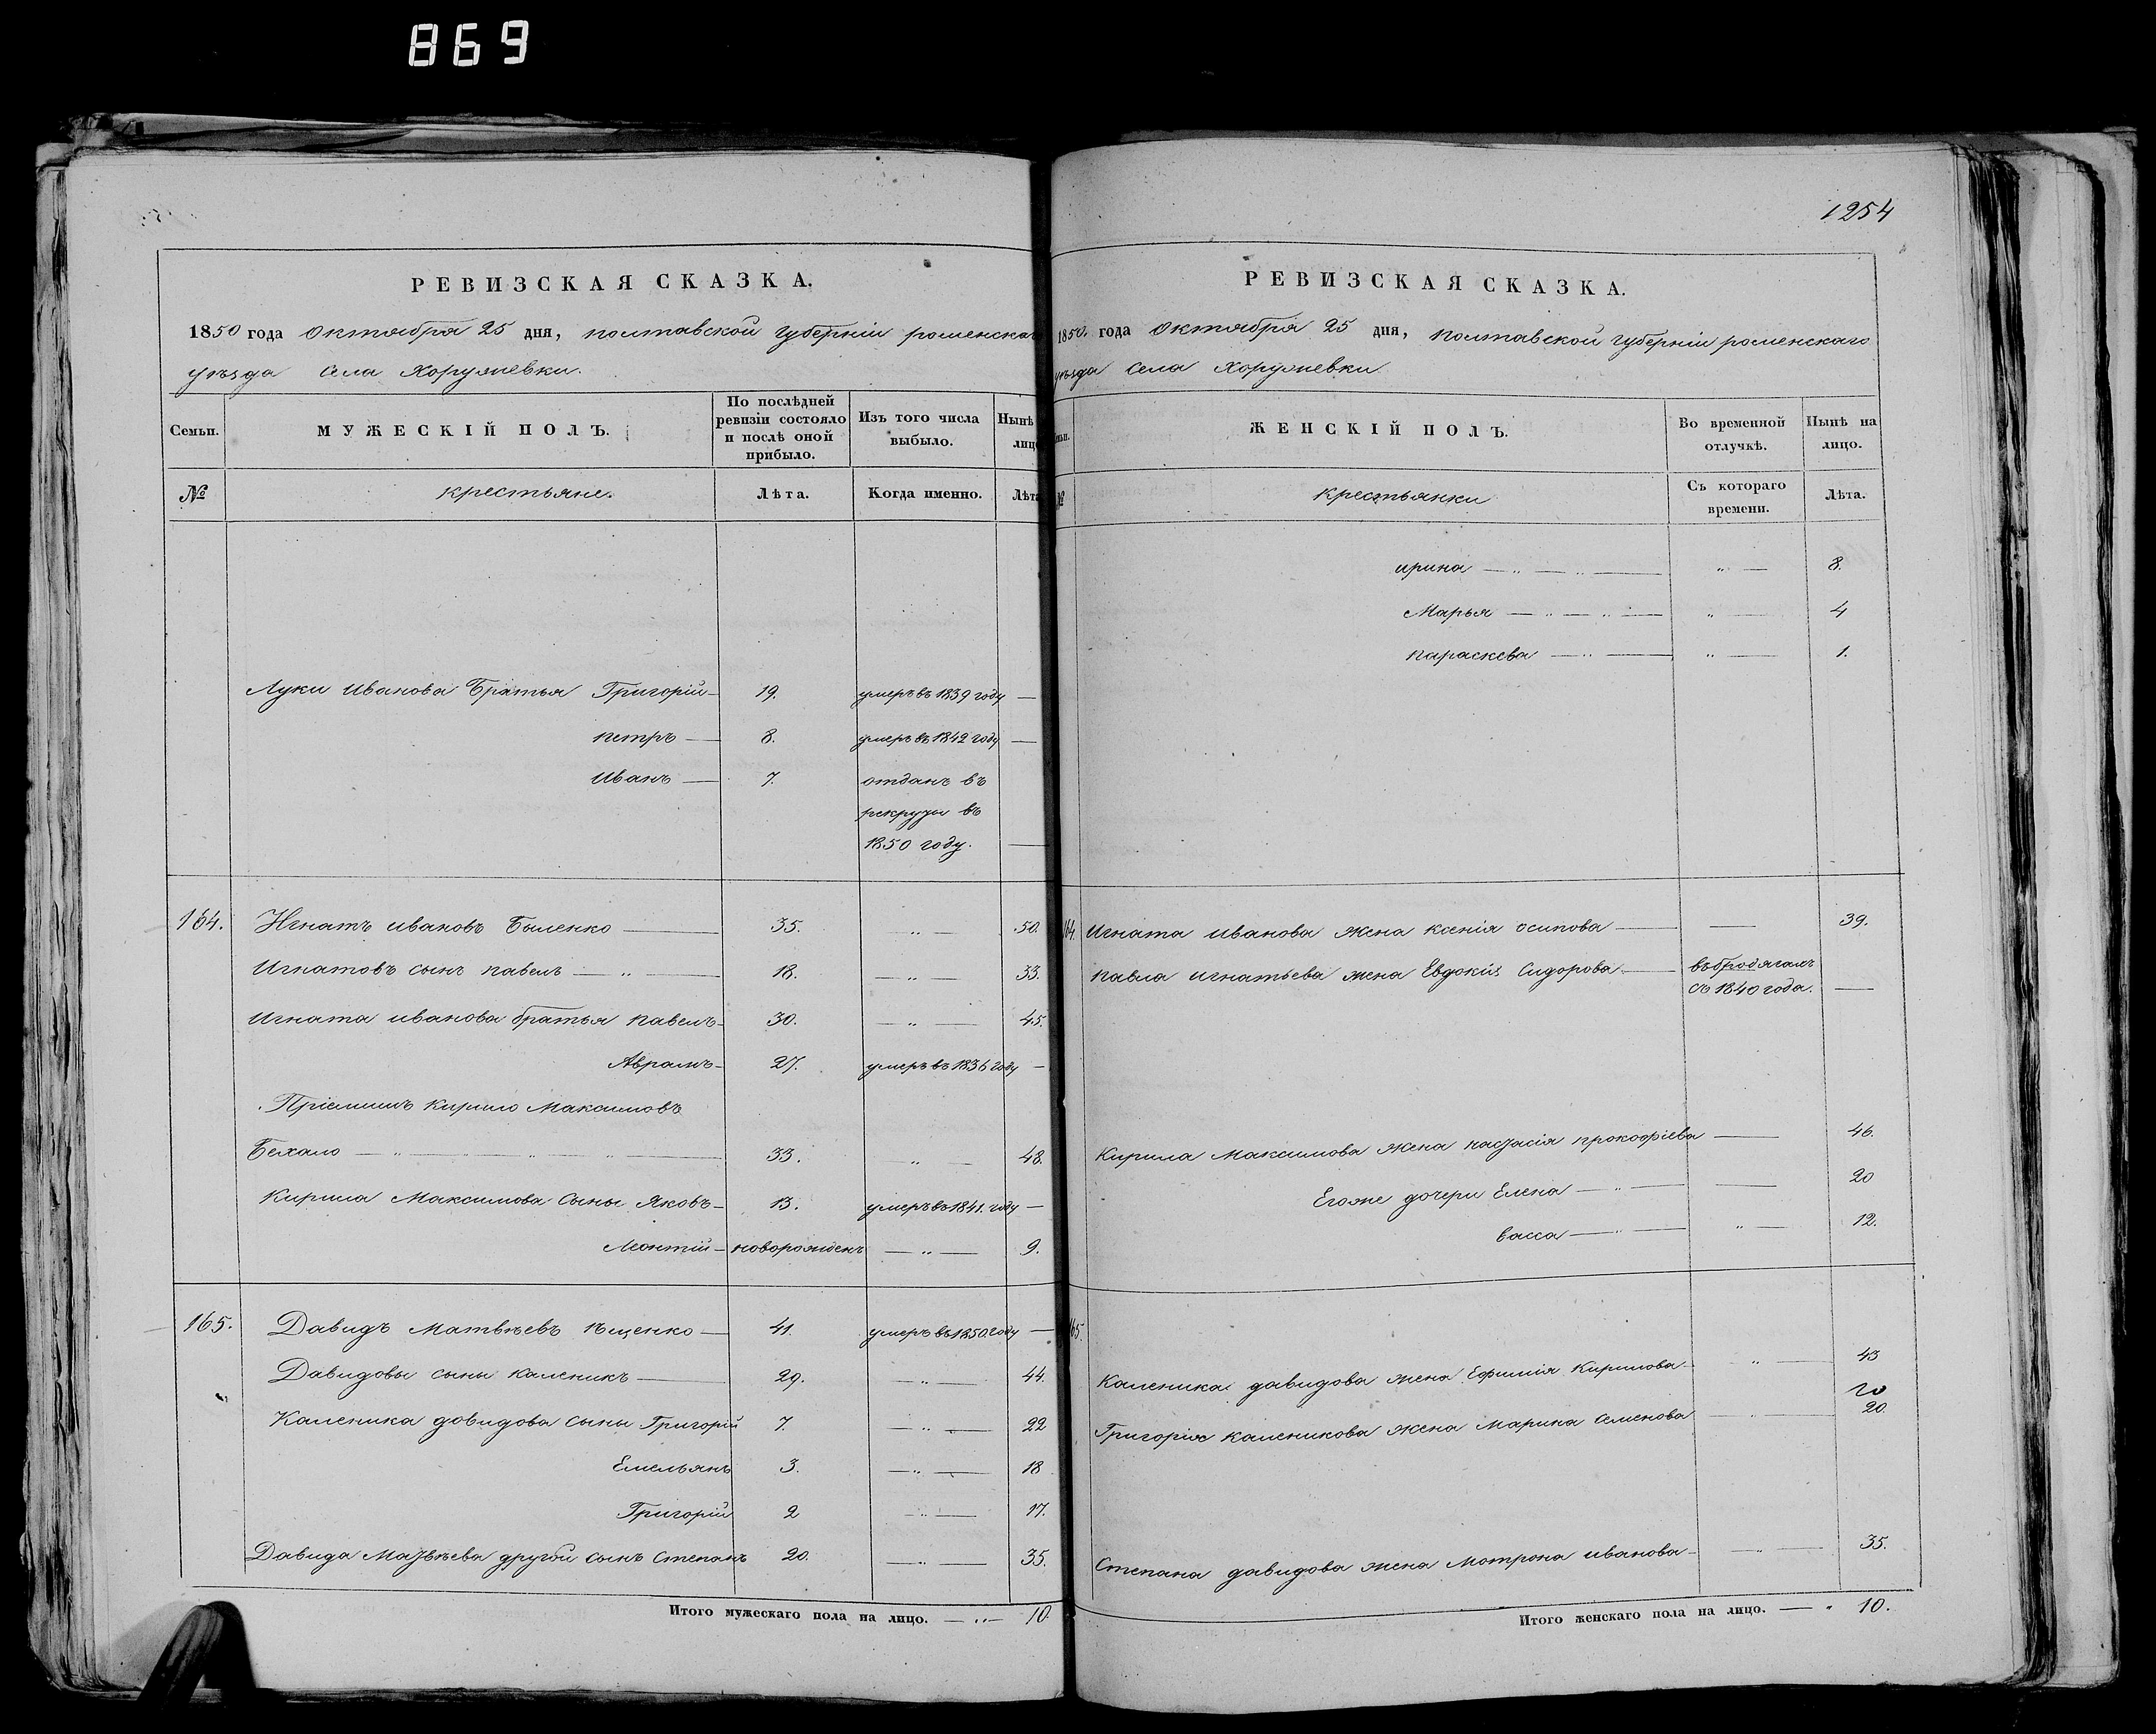 869
РЕВИЗСКАЯ СКАЗКА.
1850 года Октября 25 дня, полтавской губерніи роменскаго
уѣзда села Хоружевки.
Семьи. МУЖЕСКІЙ ПОЛЪ. По послѣдней ревизіи состояло и послѣ оной прибыло. Изъ того числа выбыло. Нынѣ
лицо
№ крестьяне. Лѣта. Когда именно. Лѣта
Луки Иванова Братья Григорій — 19. умеръ въ 1839 году —
петръ — 8. умеръ въ 1842 году —
Иванъ — 7. отданъ въ
рекруты въ
1850 году. —
164. Игнатъ ивановъ Быленко — 35. „ — 50.
Игнатовъ сынъ павелъ — „ — 18. — „ — 33.
Игната иванова братья павелъ — 30. — „ — 45.
Аврамъ — 27. умеръ въ 1836 году —
Пріемышъ Кирило Максимовъ
Бехало — „ — „ — „ — 33. „ — 48.
Кирила Максимова сыны Яковъ — 13. умеръ въ 1841. году —
Леонтій — новорожденъ — „ — 9.
165. Давидъ Матвѣевъ Іщенко — 41. умеръ въ 1850 году —
Давидовы сыны Каленикъ — 29. — „ — 44.
Каленика довидова сыны Григорій 7. — „ — 22
Емельянъ 3. — „ — 18
Григорій 2 — „ — 17.
Давида Матвѣева другой сынъ Степанъ 20. — „ — 35.
Итого мужескаго пола на лицо. — „ — 10.
1254
РЕВИЗСКАЯ СКАЗКА.
1850. года Октября 25 дня, полтавской губерніи роменскаго
уѣзда села Хоружевки
ЖЕНСКІЙ ПОЛЪ. Во временной отлучкѣ. Нынѣ на лицо.
№ крестьянки Съ котораго времени. Лѣта.
ирина — „ — „ — „ — 8.
Марья — „ — „ — „ — 4
параскева — „ — „ — 1.
164. Игната иванова жена ксенія осипова — — 39.
павла игнатьева жена Евдокія Сидорова — въ бродягахъ
съ 1840 года. —
Кирила Максимова жена настасія прокофіева — 46.
Егоже дочери Елена — „ — — 20
васса — „ — „ — 12.
165.
Каленика давидова жена Ефимія Кирилова — „ — 43
20
Григорія каленикова жена Марина Семенова — „ — 20.
Степана давидова жена Мотрона иванова — — „ — 35.
Итого женскаго пола на лицо. — „ 10.